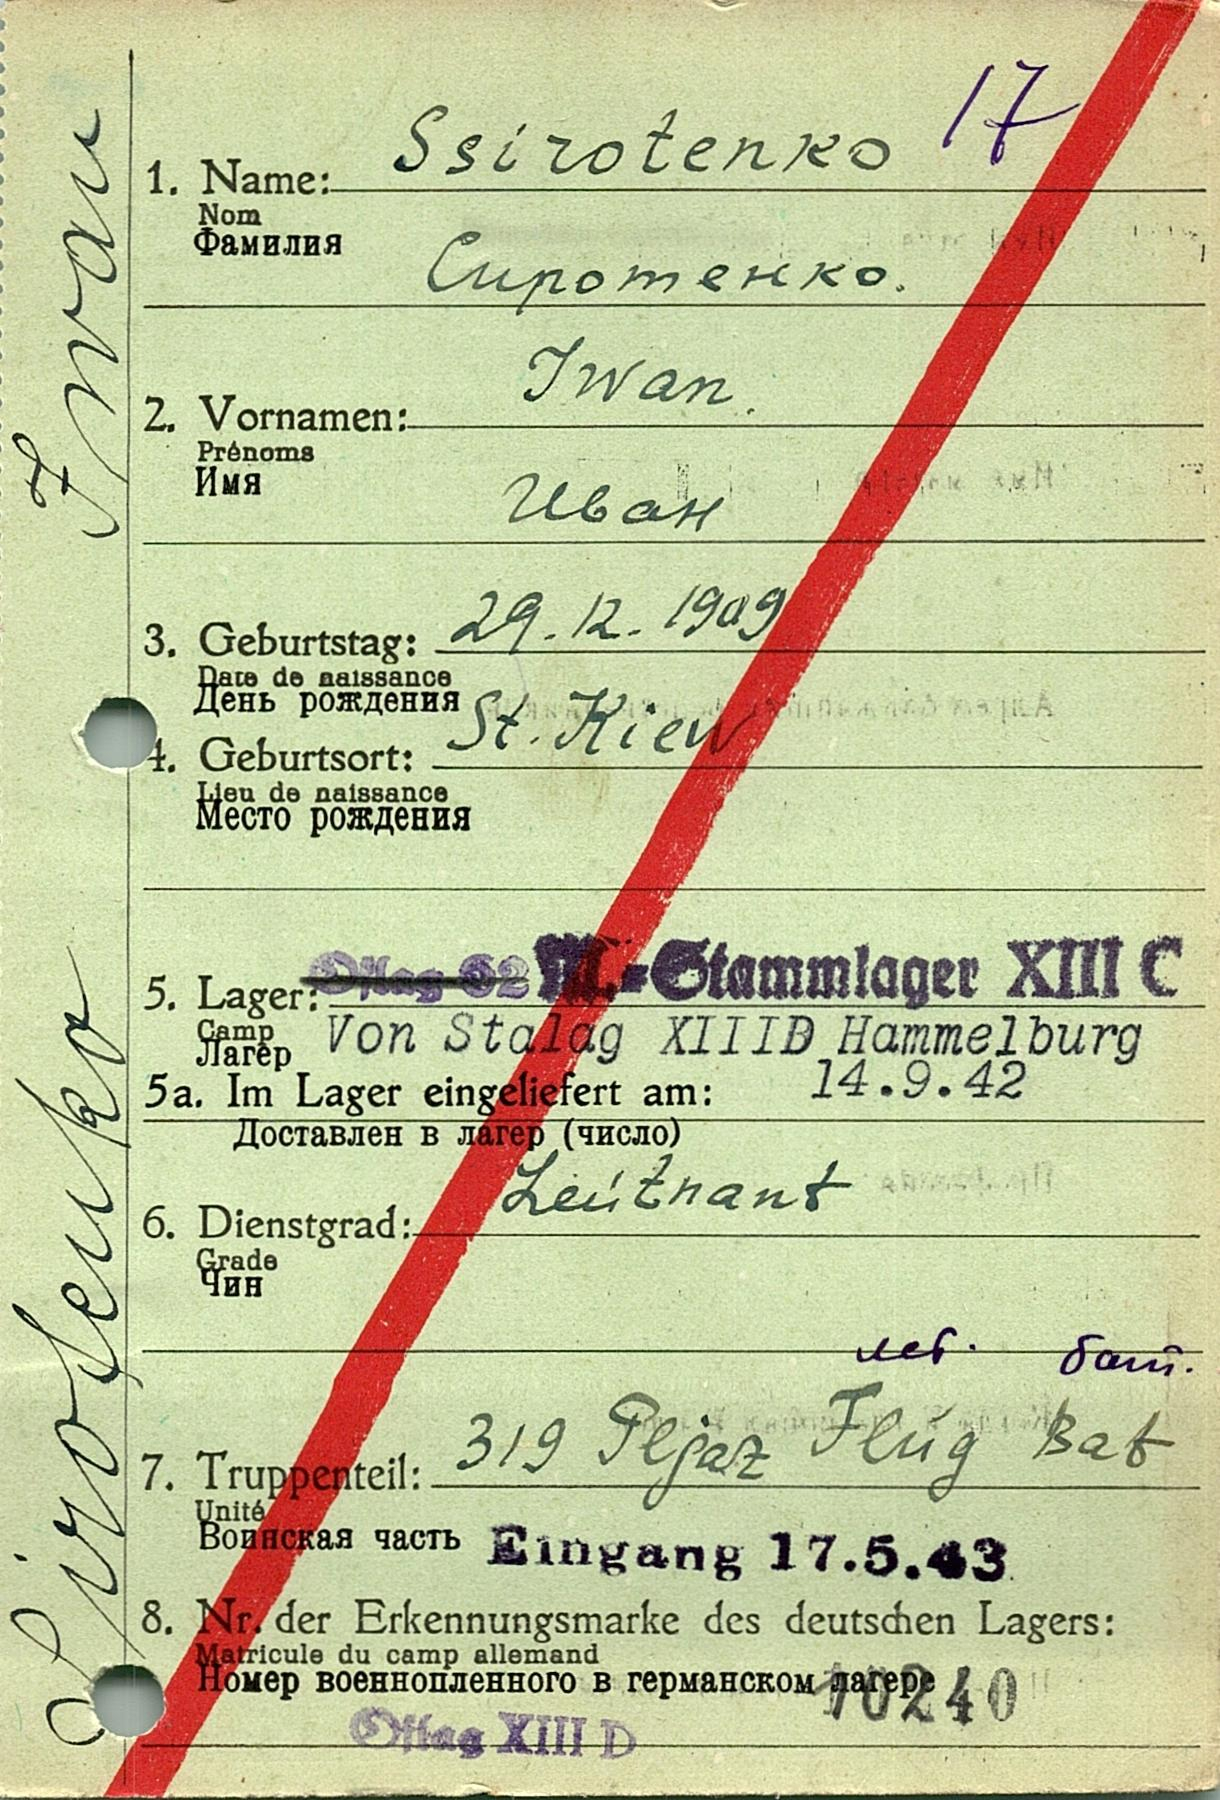 17
1. Name: Ssirotenko
Nom
Фамилия
Сиротенко.
Iwan.
2. Vornamen:
Prénoms
Имя
Иван
3. Geburtstag: 29.12.1909
Date de naissance
День рождения
4. Geburtsort: St. Kiew
Lieu de naissance
Место рождения
5. Lager: Oflag 62 M.-Stammlager XIII C
Camp
Лагер Von Stalag XIIID Hammelburg
5a. Im Lager eingeliefert am: 14.9.42
Доставлен в лагер (число)
6. Dienstgrad: Leutnant
Grade
Чин
бат.
7. Truppenteil: 319 Flug Bat
Unité
Воинская часть Eingang 17.5.43
8. Nr. der Erkennungsmarke des deutschen Lagers:
Matricule du camp allemand
Номер военнопленного в германском лагере 10240
Oflag XIII D
Sirotenko Iwan